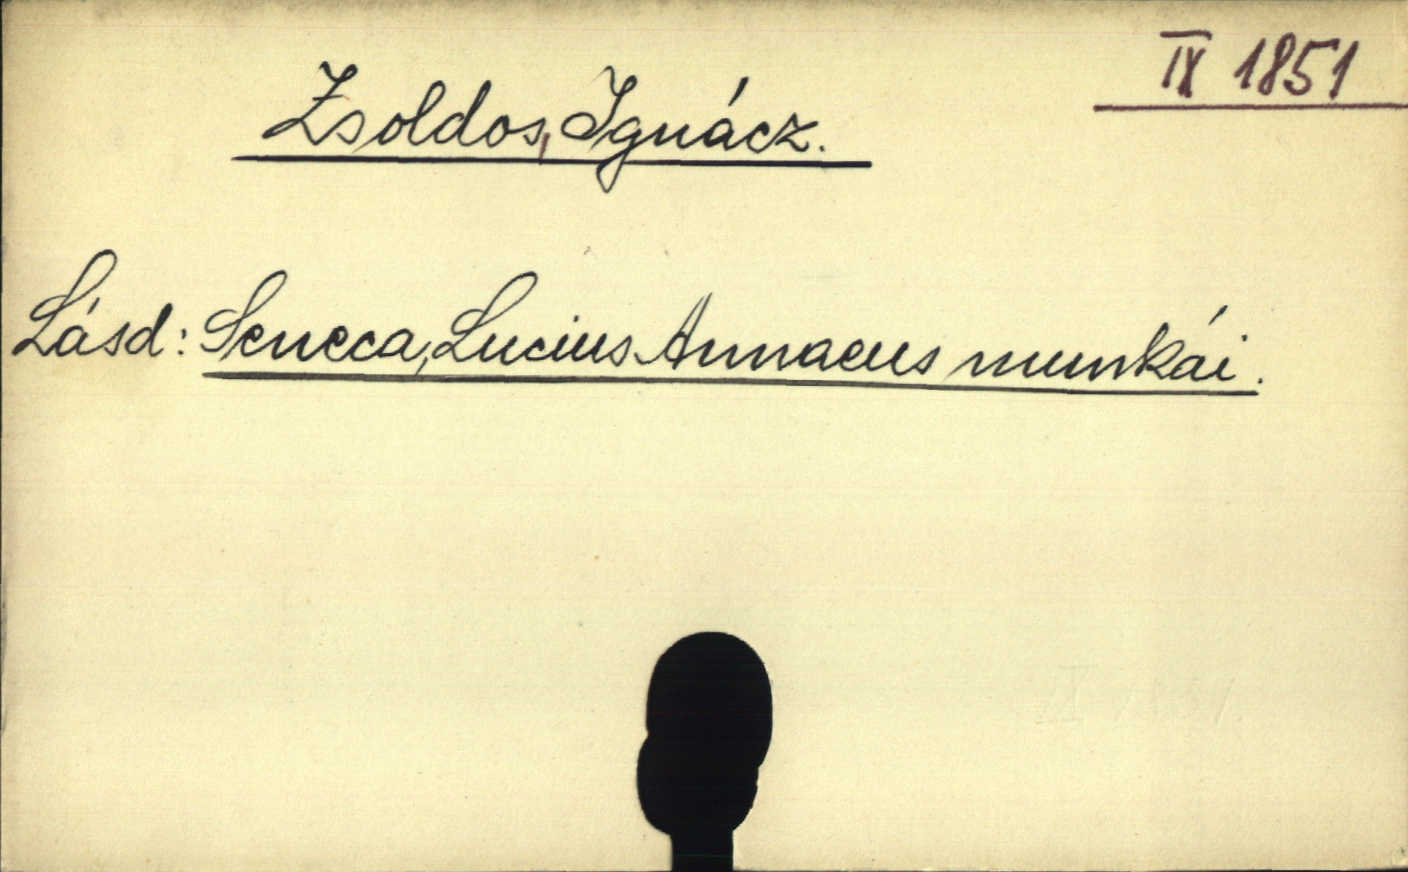 IX 1851
Zsoldos, Ignácz.
Lásd: Seneca, Lucius Annaeus munkái.